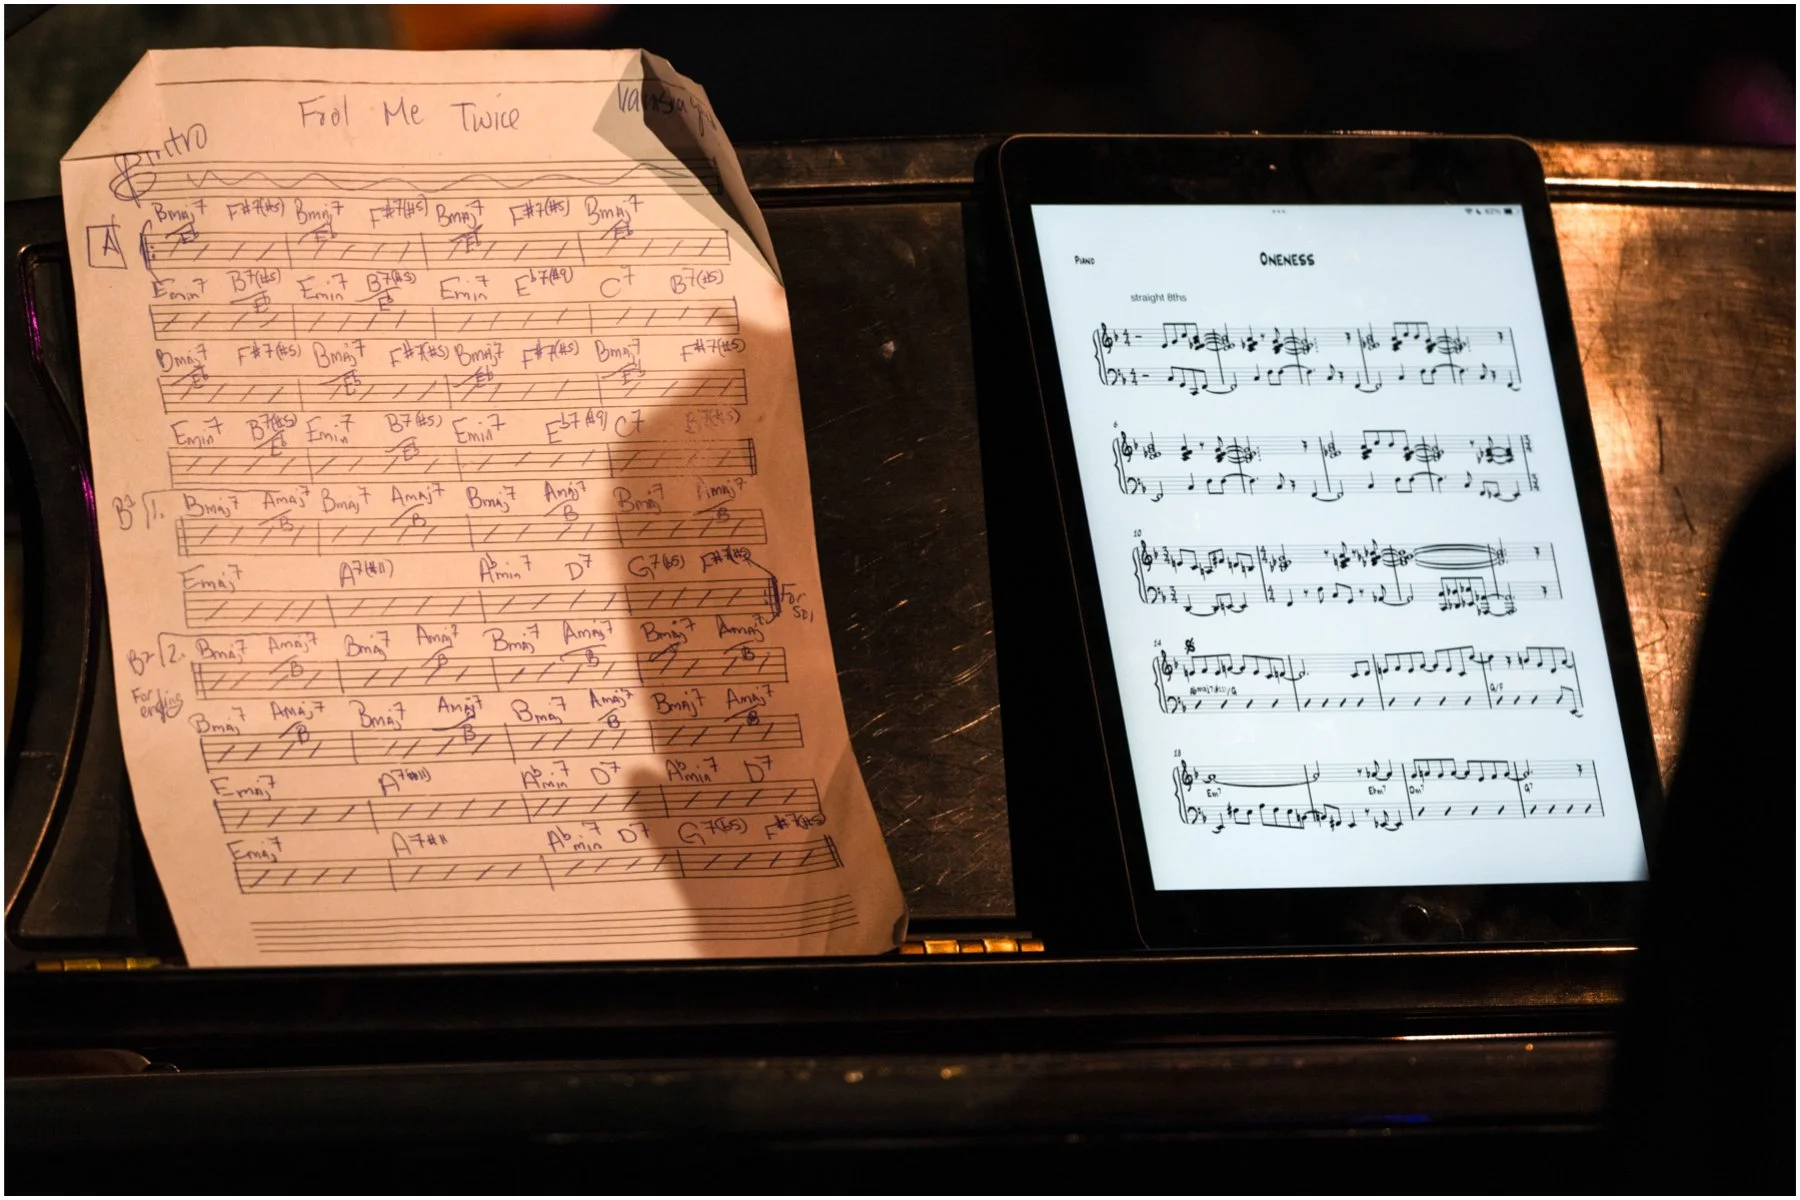 Fool Me Twice
Intro
A
Bmaj7/Eb F#7(#5) Bmaj7/Eb F#7(#5) Bmaj7/Eb F#7(#5) Bmaj7/Eb
Emin7 B7(#5)/Eb Emin7 B7(#5)/Eb Emin7 Eb7(#9) C7 B7(#5)
Bmaj7/Eb F#7(#5) Bmaj7/Eb F#7(#5) Bmaj7/Eb F#7(#5) Bmaj7/Eb F#7(#5)
Emin7 B7(#5)/Eb Emin7 B7(#5)/Eb Emin7 Eb7(#9) C7 B7(#5)
1. Bmaj7 Amaj7/B Bmaj7 Amaj7/B Bmaj7 Amaj7/B Bmaj7 Amaj7/B
Emaj7 A7(#11) Abmin7 D7 G7(b5) F#7(#5)
For
2. Bmaj7 Amaj7/B Bmaj7 Amaj7/B Bmaj7 Amaj7/B Bmaj7 Amaj7/B
For
ending
Bmaj7 Amaj7/B Bmaj7 Amaj7/B Bmaj7 Amaj7/B Bmaj7 Amaj7/B
Emaj7 A7(#11) Abmin7 D7 Abmin7 D7
Emaj7 A7#11 Abmin7 D7 G7(b5) F#7(#5)
62%
Piano
Oneness
straight 8ths
6
10
14
G/F
18
Em7 Ebm7 Dm7 G7